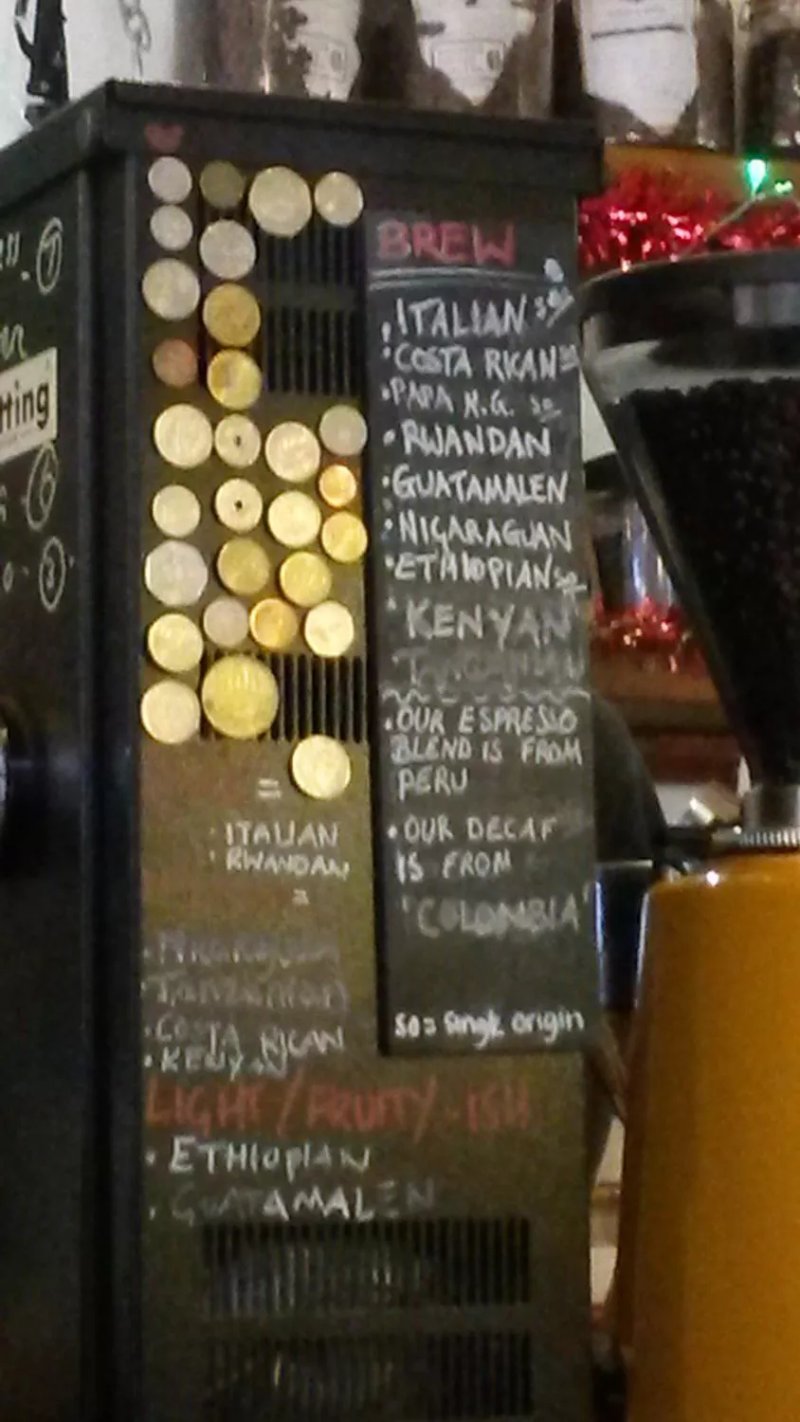 tting
BREW
• ITALIAN so
• COSTA RICAN so
• PAPA N.G. so
• RWANDAN
• GUATAMALEN
• NICARAGUAN
• ETHIOPIAN so
• KENYAN
TANZANIAN
• OUR ESPRESSO
BLEND IS FROM
PERU
• OUR DECAF
IS FROM
"COLOMBIA"
so = single origin
=
• ITALIAN
• RWANDAN
=
• TANZANIAN
• COSTA RICAN
• KENYAN
LIGHT/FRUITY-ISH
• ETHIOPIAN
• GUATAMALEN